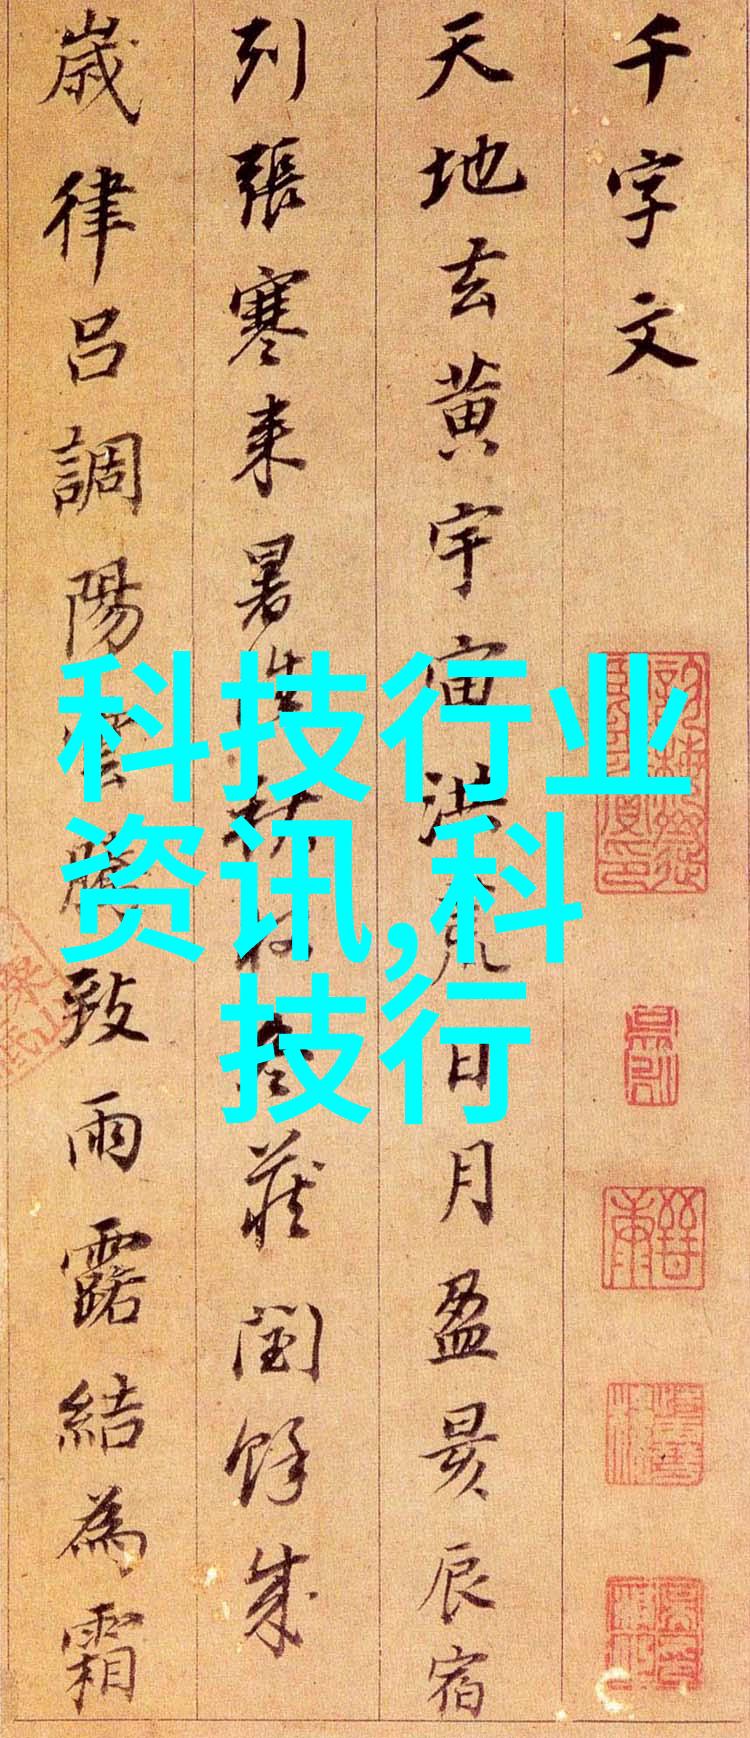 千字文
天地玄黄宇宙洪荒日月盈昃辰宿
列張寒来暑往秋收冬蔵閏餘成
歳律呂調陽雲騰致雨露結為霜
科技行业
资讯,科
技行